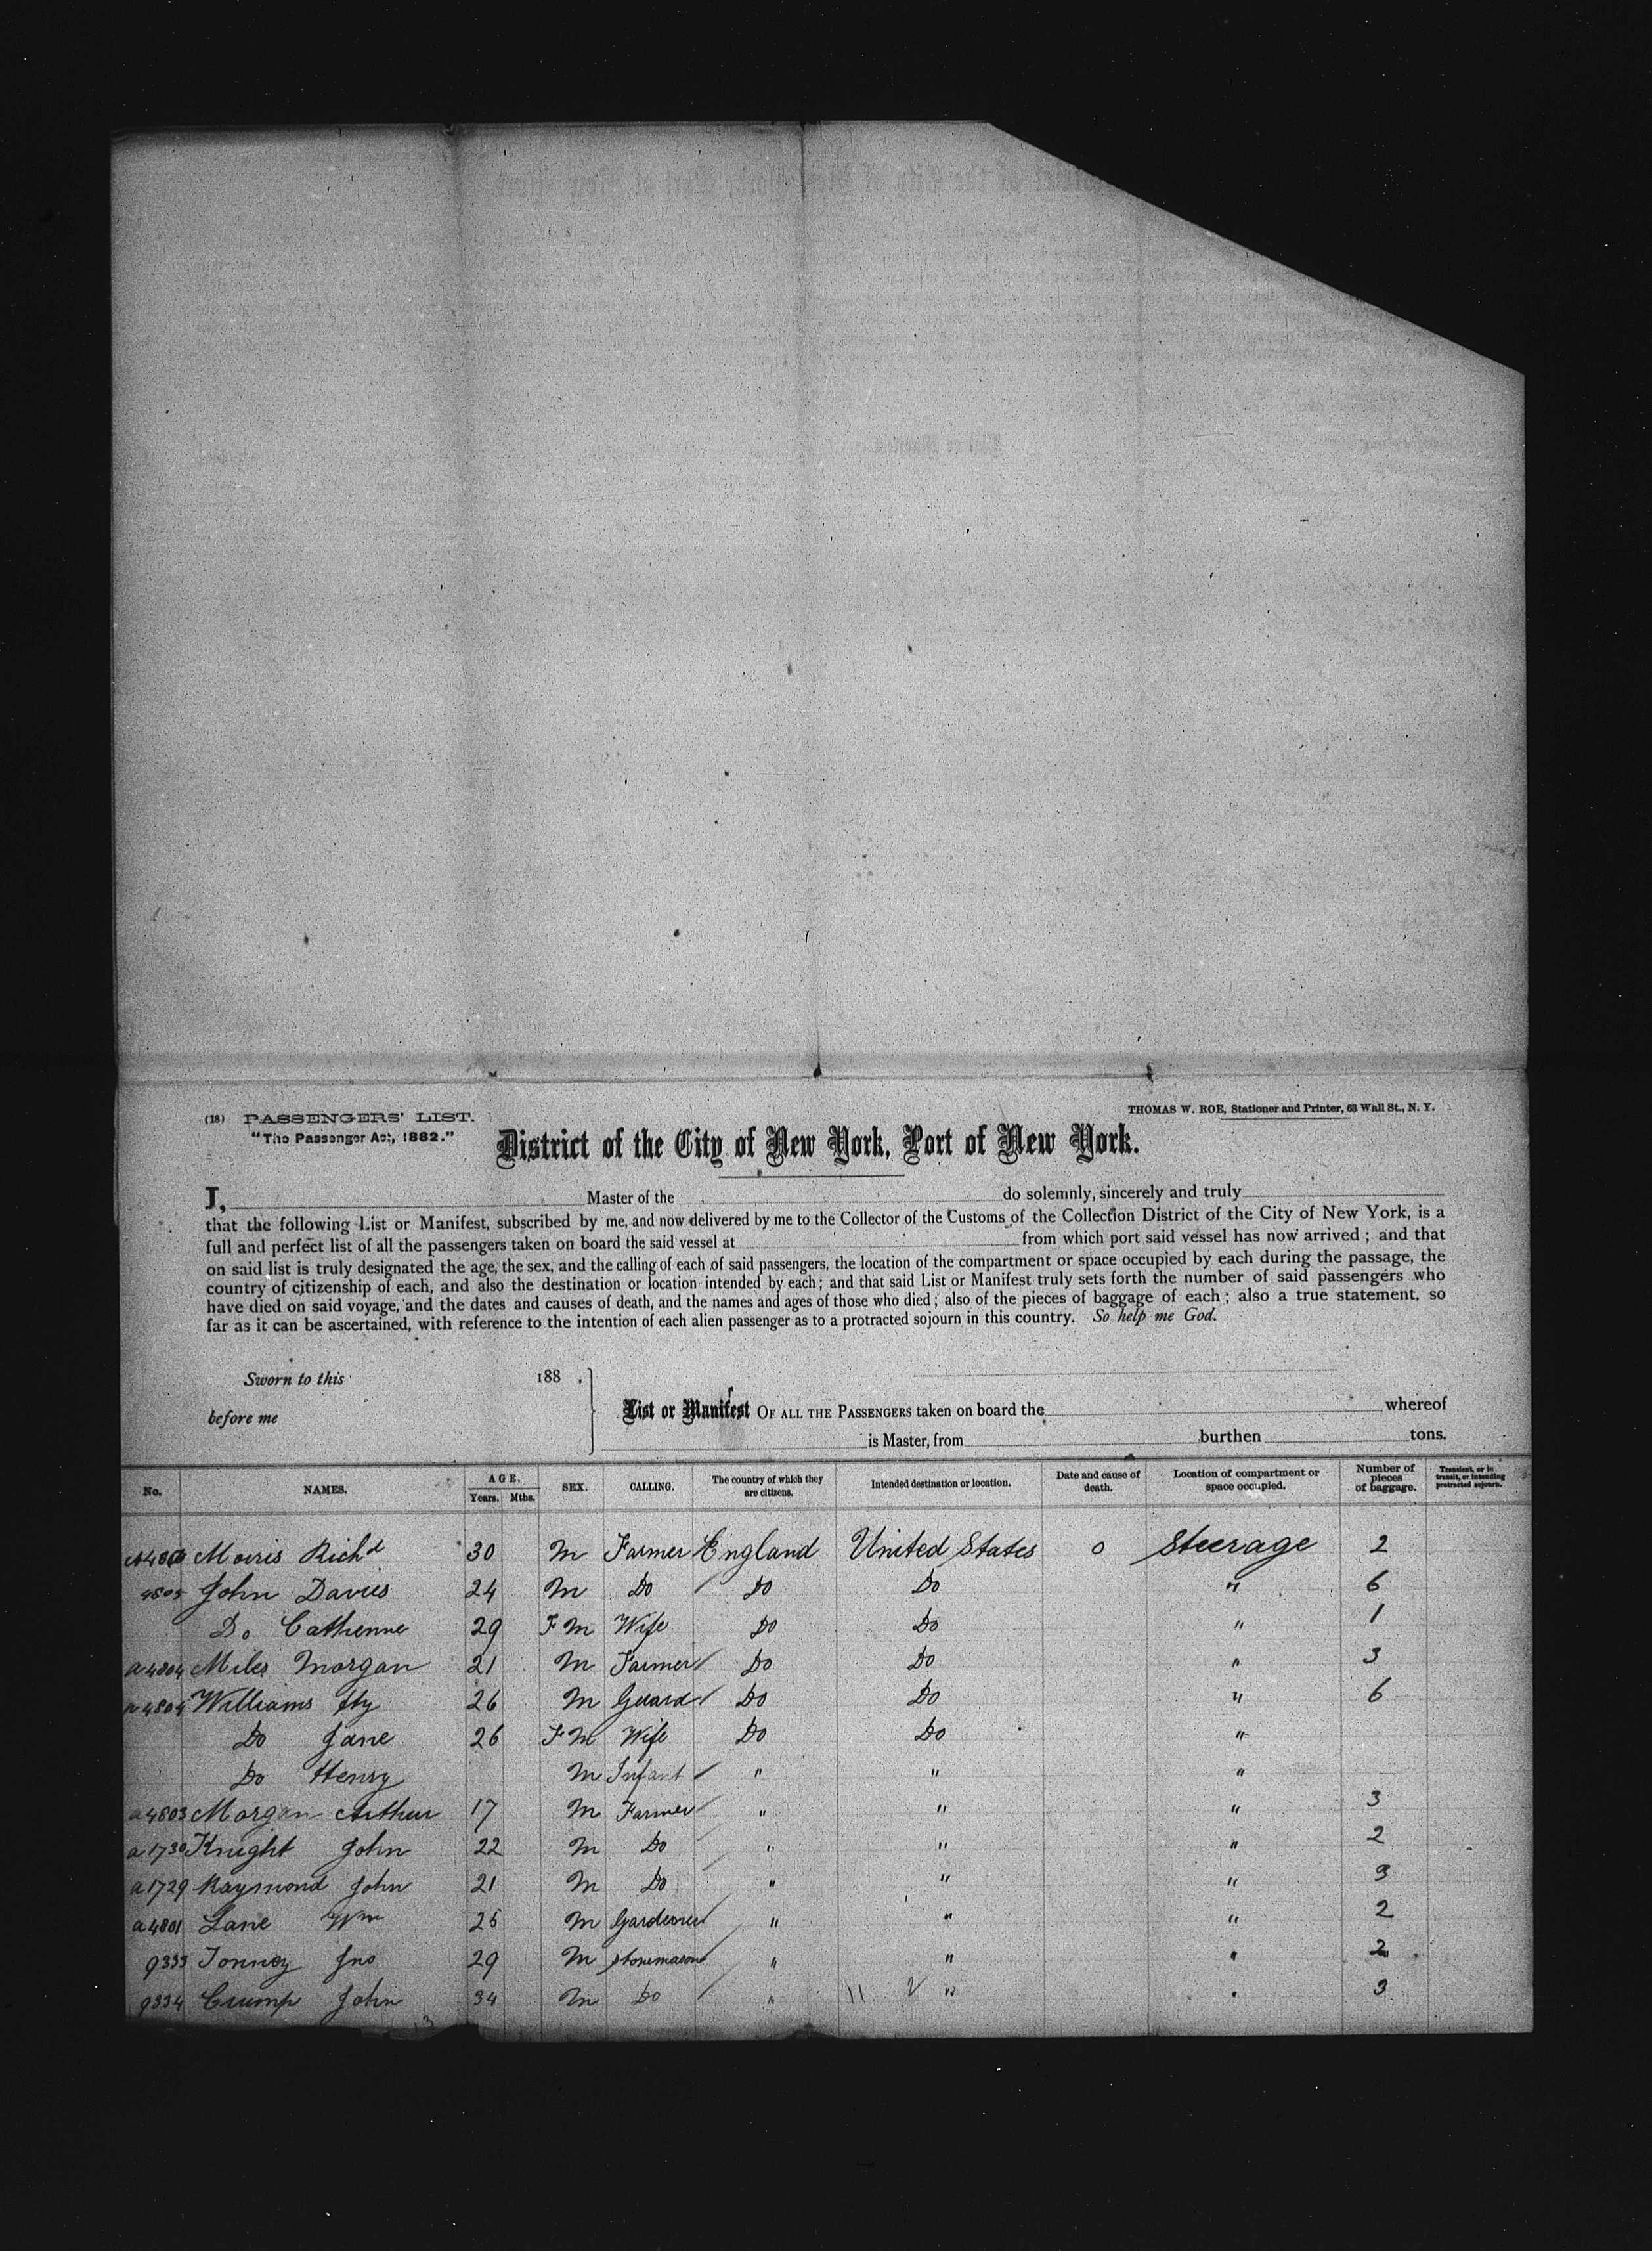 (18) PASSENGERS' LIST.
THOMAS W. ROE, Stationer and Printer, 63 Wall St., N. Y.
"The Passenger Act, 1882."
District of the City of New York, Port of New York.
I, Master of the do solemnly, sincerely and truly
that the following List or Manifest, subscribed by me, and now delivered by me to the Collector of the Customs of the Collection District of the City of New York, is a
full and perfect list of all the passengers taken on board the said vessel at from which port said vessel has now arrived ; and that
on said list is truly designated the age, the sex, and the calling of each of said passengers, the location of the compartment or space occupied by each during the passage, the
country of citizenship of each, and also the destination or location intended by each ; and that said List or Manifest truly sets forth the number of said passengers who
have died on said voyage, and the dates and causes of death, and the names and ages of those who died ; also of the pieces of baggage of each ; also a true statement, so
far as it can be ascertained, with reference to the intention of each alien passenger as to a protracted sojourn in this country. So help me God.
Sworn to this 188 .
before me
List or Manifest OF ALL THE PASSENGERS taken on board the whereof
is Master, from burthen tons.
No. NAMES. AGE. Years. Mths. SEX. CALLING. The country of which they are citizens. Intended destination or location. Date and cause of death. Location of compartment or space occupied. Number of pieces of baggage. Transient, or in transit, or intending protracted sojourn.
Morris Richd 30 M Farmer England United States 0 Steerage 2
4805 John Davies 24 M Do Do Do " 6
Do Catherine 29 F M Wife Do Do " 1
a 4804 Miles Morgan 21 M Farmer Do Do " 3
a 4804 Williams Hy 26 M Guard Do Do " 6
Do Jane 26 F M Wife Do Do "
Do Henry M Infant " " "
a 4803 Morgan Arthur 17 M Farmer " " " 3
a 1730 Knight John 22 M Do " " " 2
a 1729 Raymond John 21 M Do " " " 3
a 4801 Lane Wm 25 M Gardener " " " 2
9333 Jno 29 M Stonemason " " " 2
9334 Crump John 34 M Do " " " 3